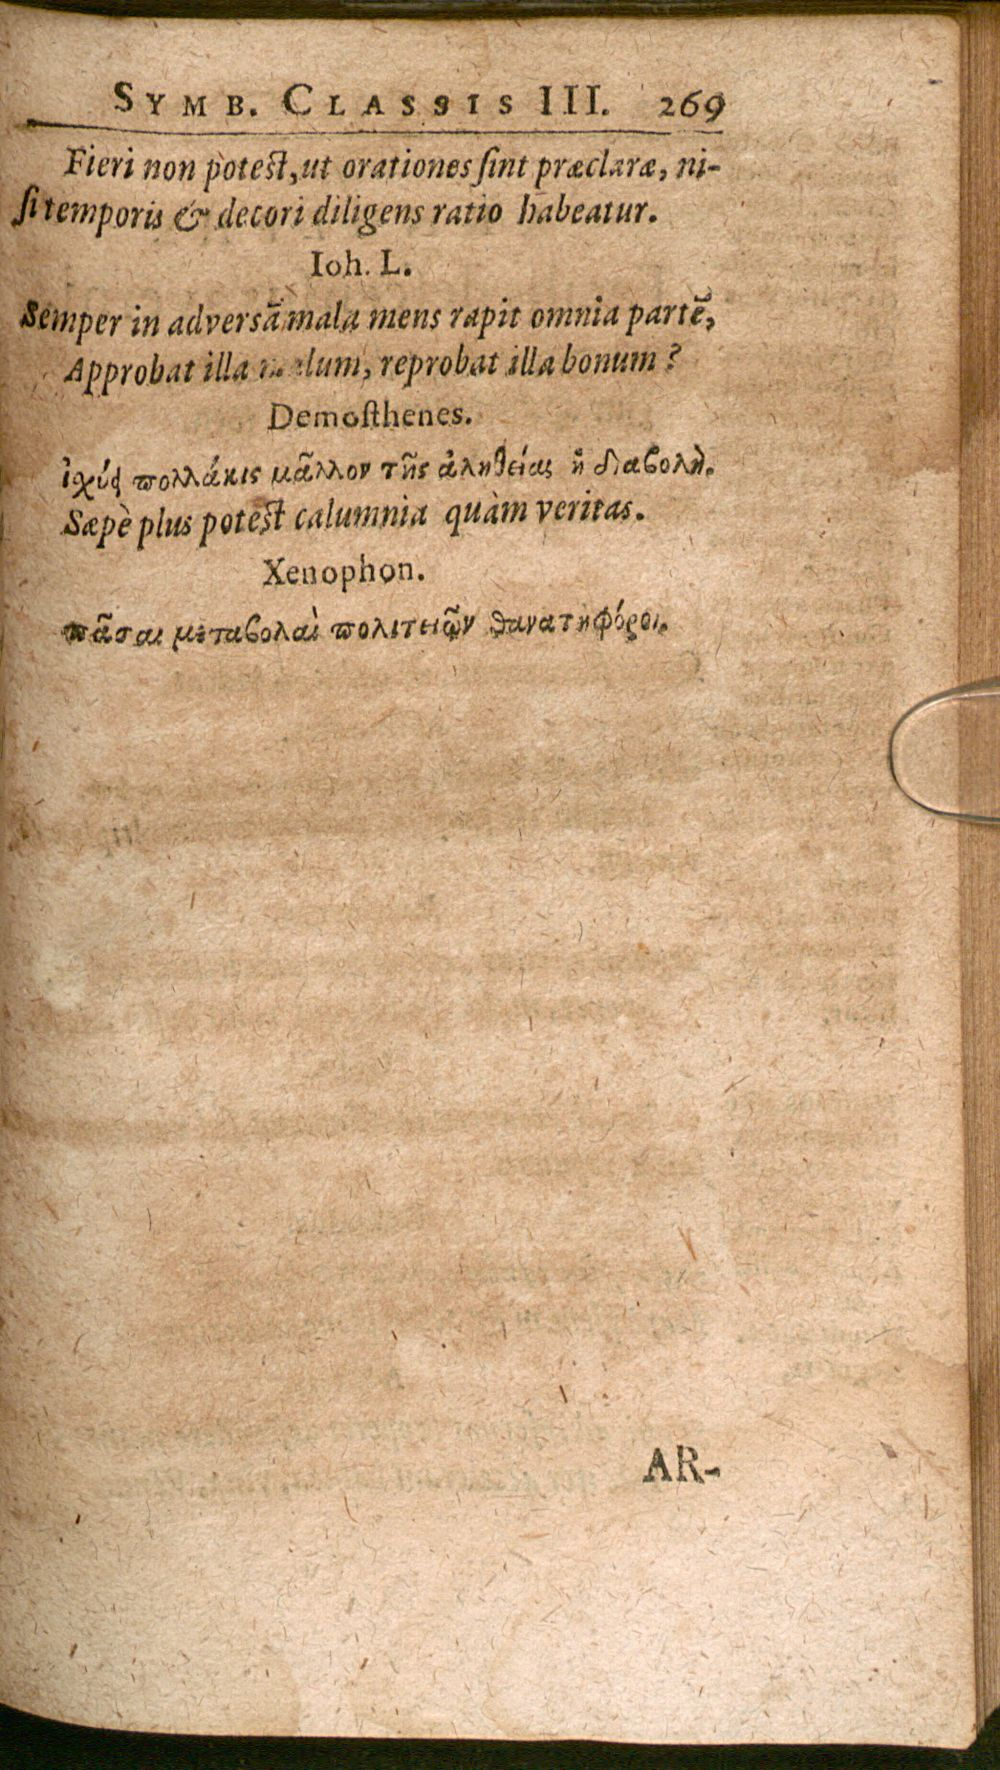 SYMB. CLASSIS III. 269
Fieri non potest, ut orationes ſint præclaræ, ni-
ſi temporis & decori diligens ratio habeatur.
Ioh. L.
Semper in adversã mala mens rapit omnia partẽ,
Approbat illa malum, reprobat illa bonum?
Demoſthenes.
ἰχύς πολλάκις μᾶλλον τῆς ἀληθείας ἡ διαβολὴ.
Sæpè plus potest calumnia quàm veritas.
Xenophon.
πᾶσαι μεταβολαὶ πολιτειῶν θανατηφόροι.
AR-